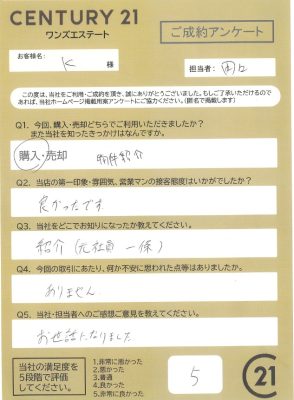 CENTURY 21
ワンズエステート
ご成約アンケート
お客様名:
K 様
担当者:
この度は、当社をご利用・ご成約を頂き、誠にありがとうございました。もしご了承いただけるので
あれば、当社ホームページ掲載用案アンケートにご協力ください。(匿名で掲載します)
Q1. 今回、購入・売却どちらでご利用いただきましたか?
また当社を知ったきっかけはなんですか?
購入・売却 物件紹介
Q2. 当店の第一印象・雰囲気、営業マンの接客態度はいかがでしたか?
良かったです
Q3. 当社をどこでお知りになったか教えてください。
紹介(元社員 一係)
Q4. 今回の取引にあたり、何か不安に思われた点等はありましたか。
ありません
Q5. 当社・担当者へのご感想ご意見を教えてください。
お世話になりました
当社の満足度を
5段階で評価
してください。
1.非常に悪かった
2.悪かった
3.普通
4.良かった
5.非常に良かった
5
C21